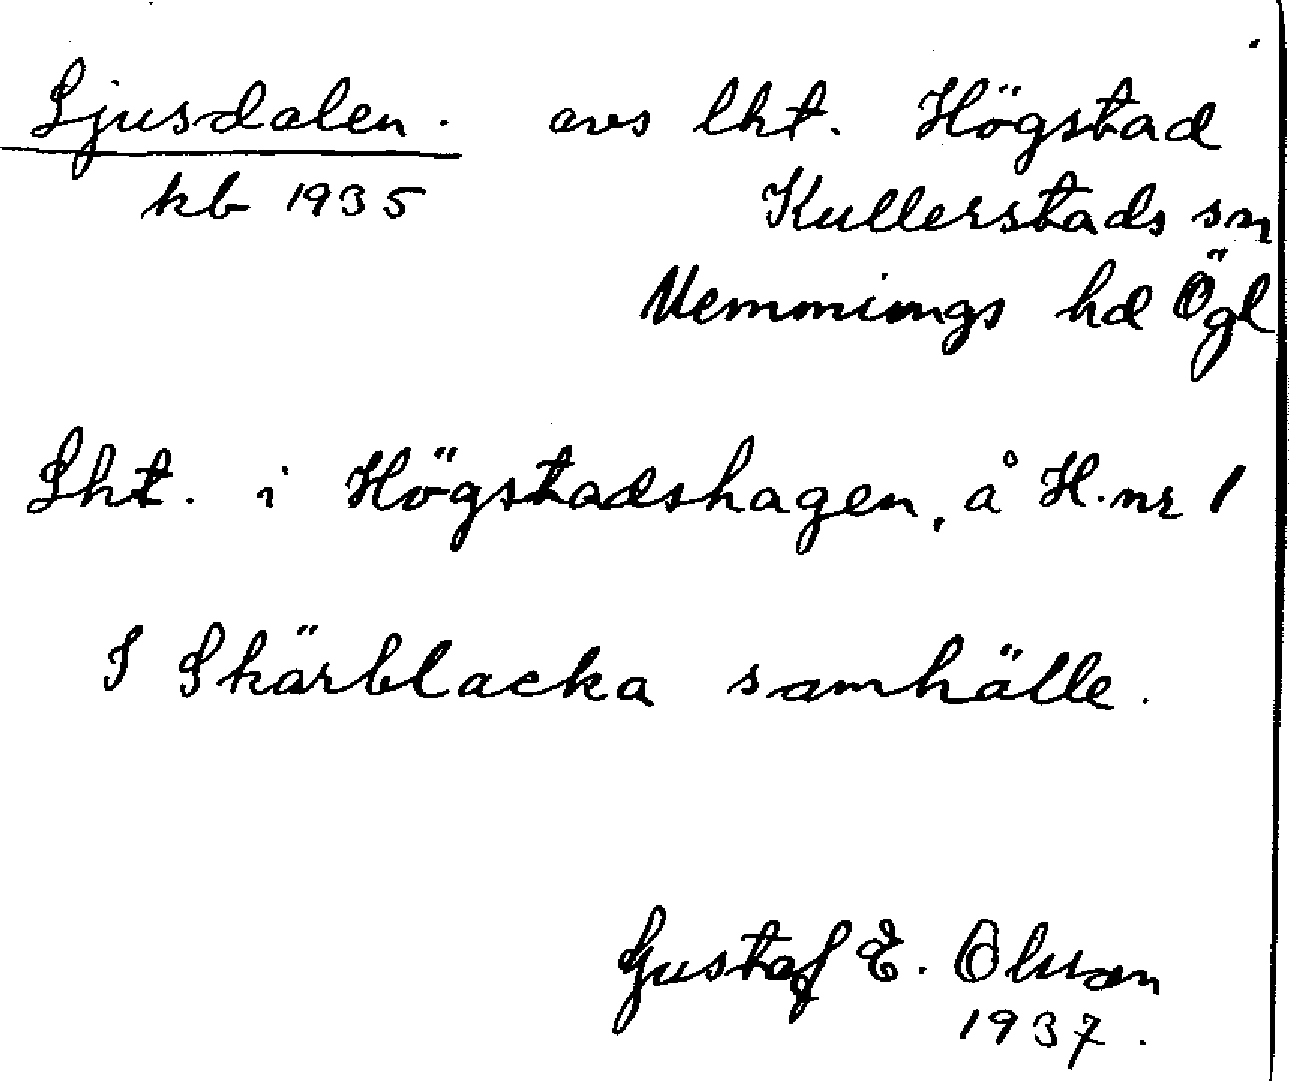 Ljusdalen. avs lht. Högstad
kb 1935 Kullerstads sn
Memmings hd Ögl
Lht. i Högstadshagen, å H. nr 1
I Skärblacka samhälle.
Gustaf E. Olsson
1937.